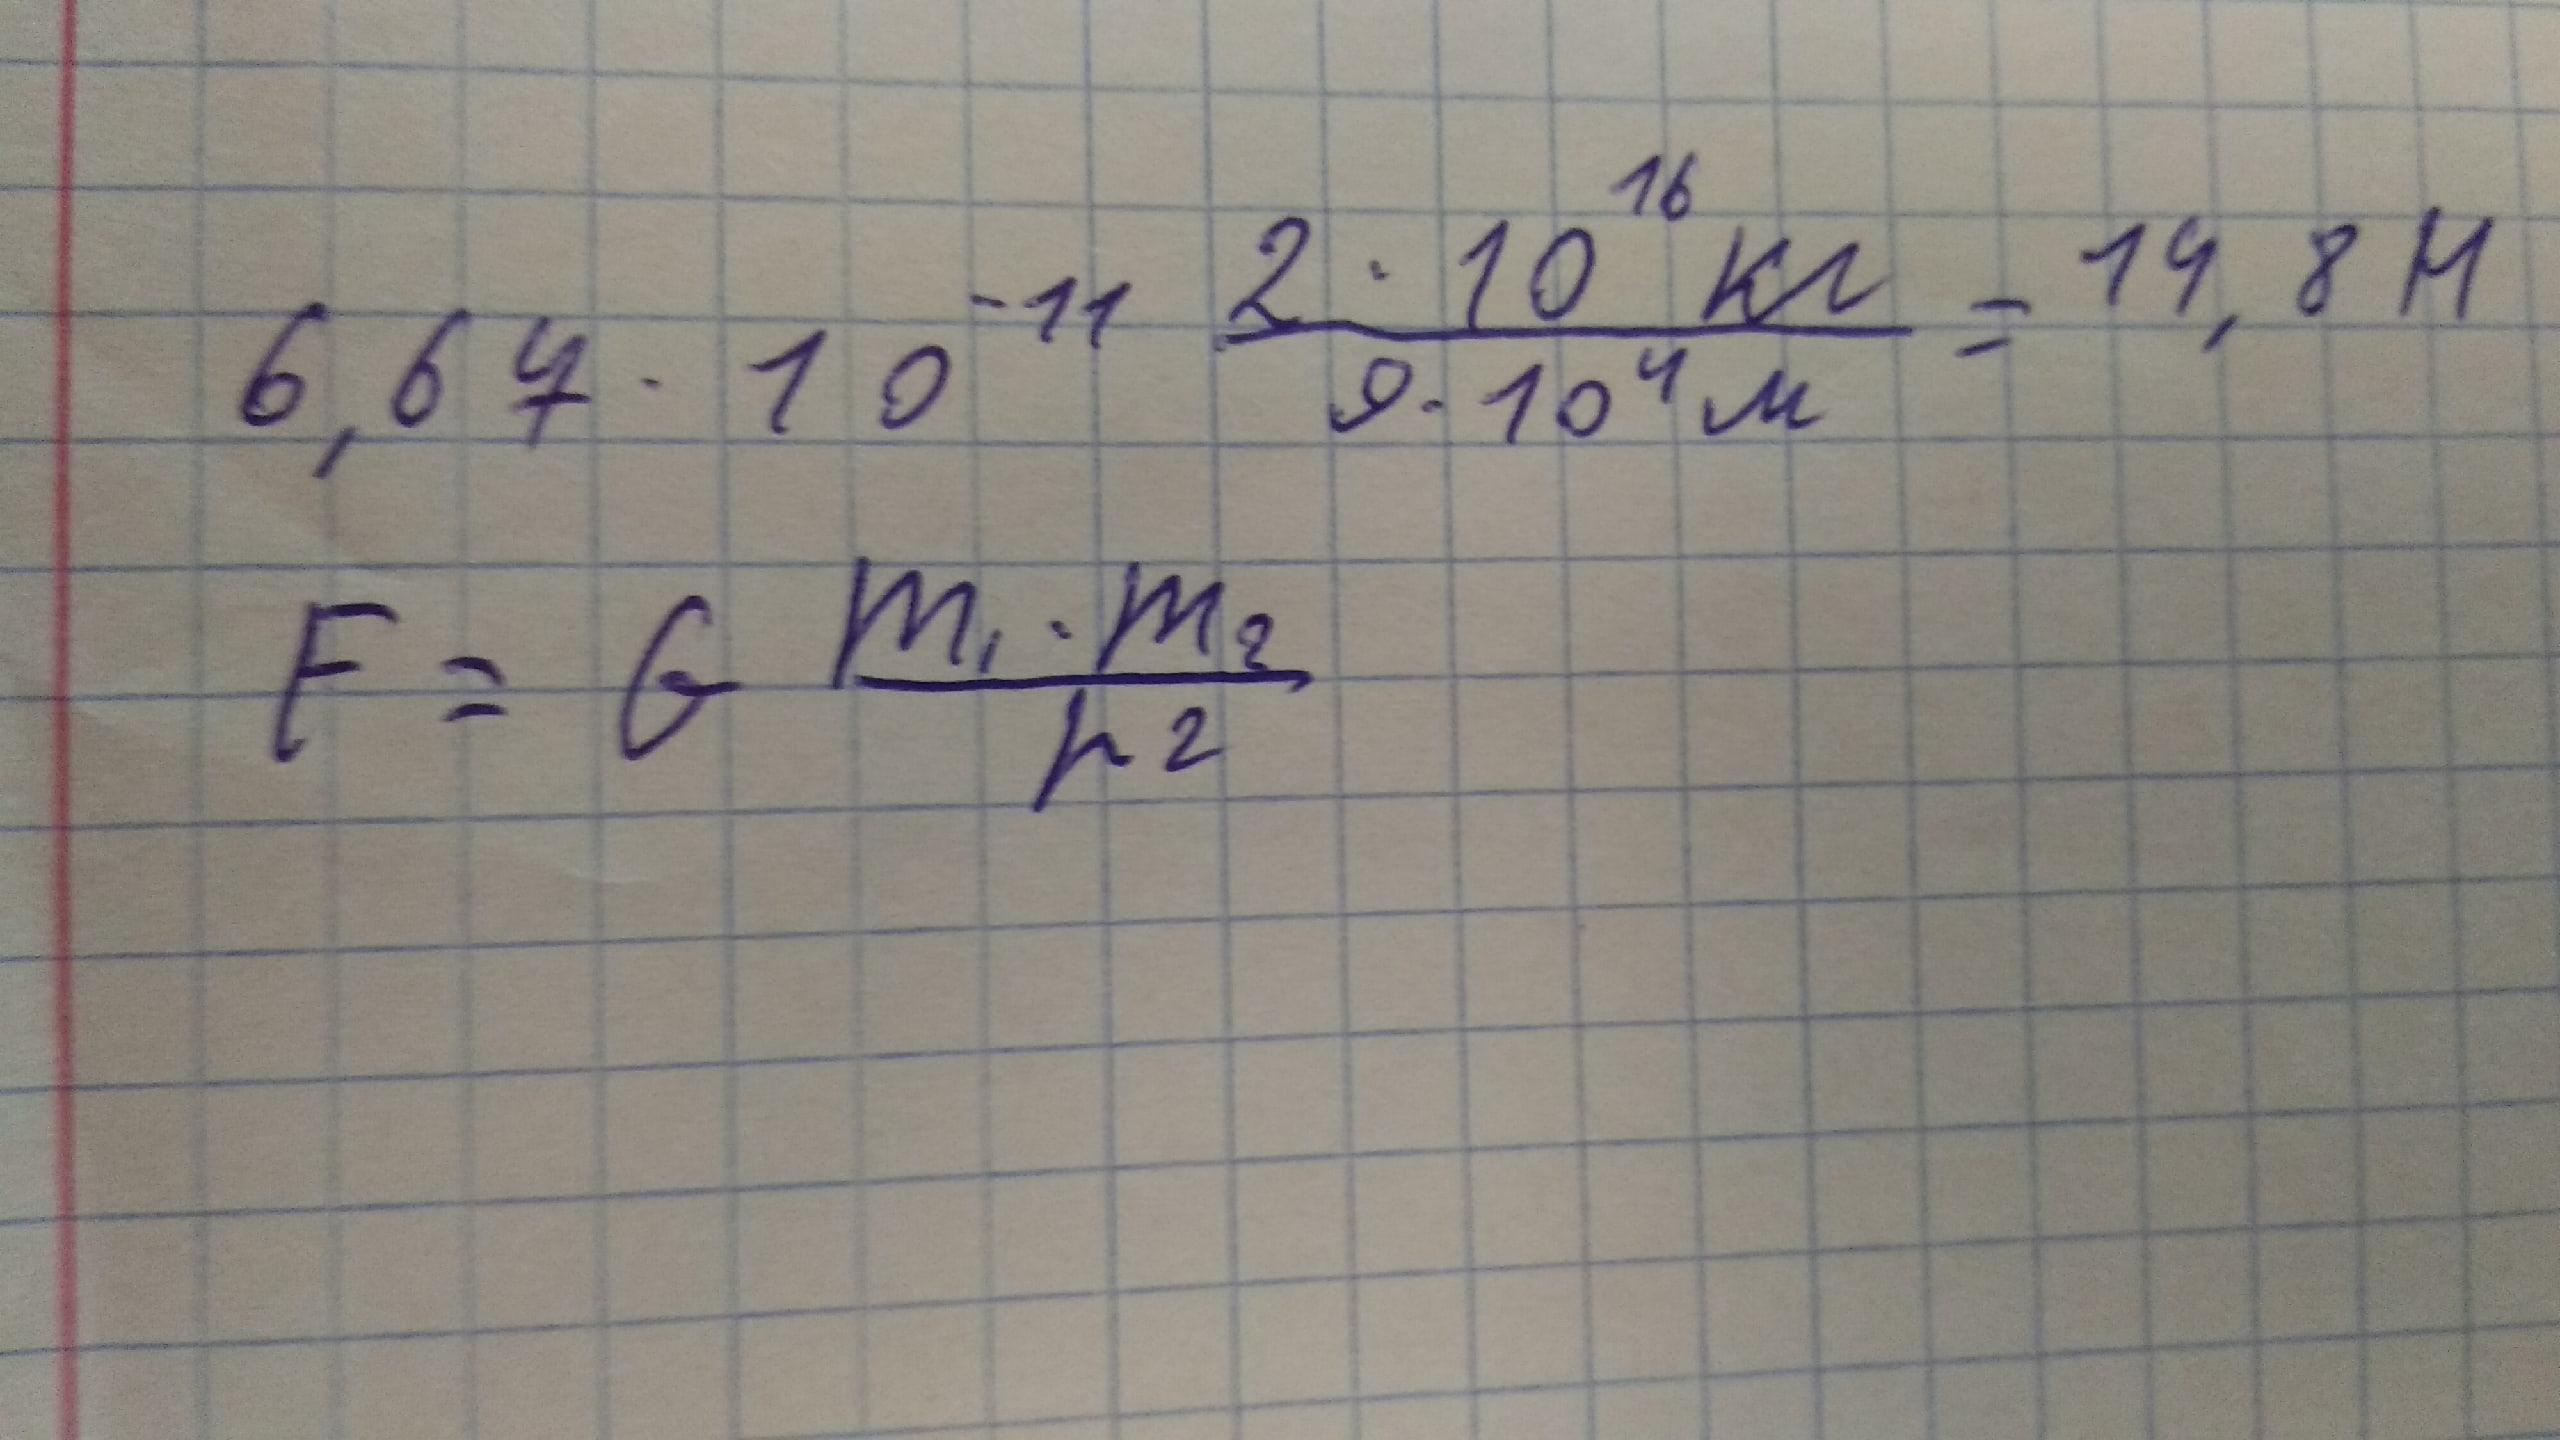 6,67 · 10⁻¹¹ (2 · 10¹⁶ кг)/(9 · 10⁴ м) = 14,8 Н
F = G (m₁ · m₂)/r²